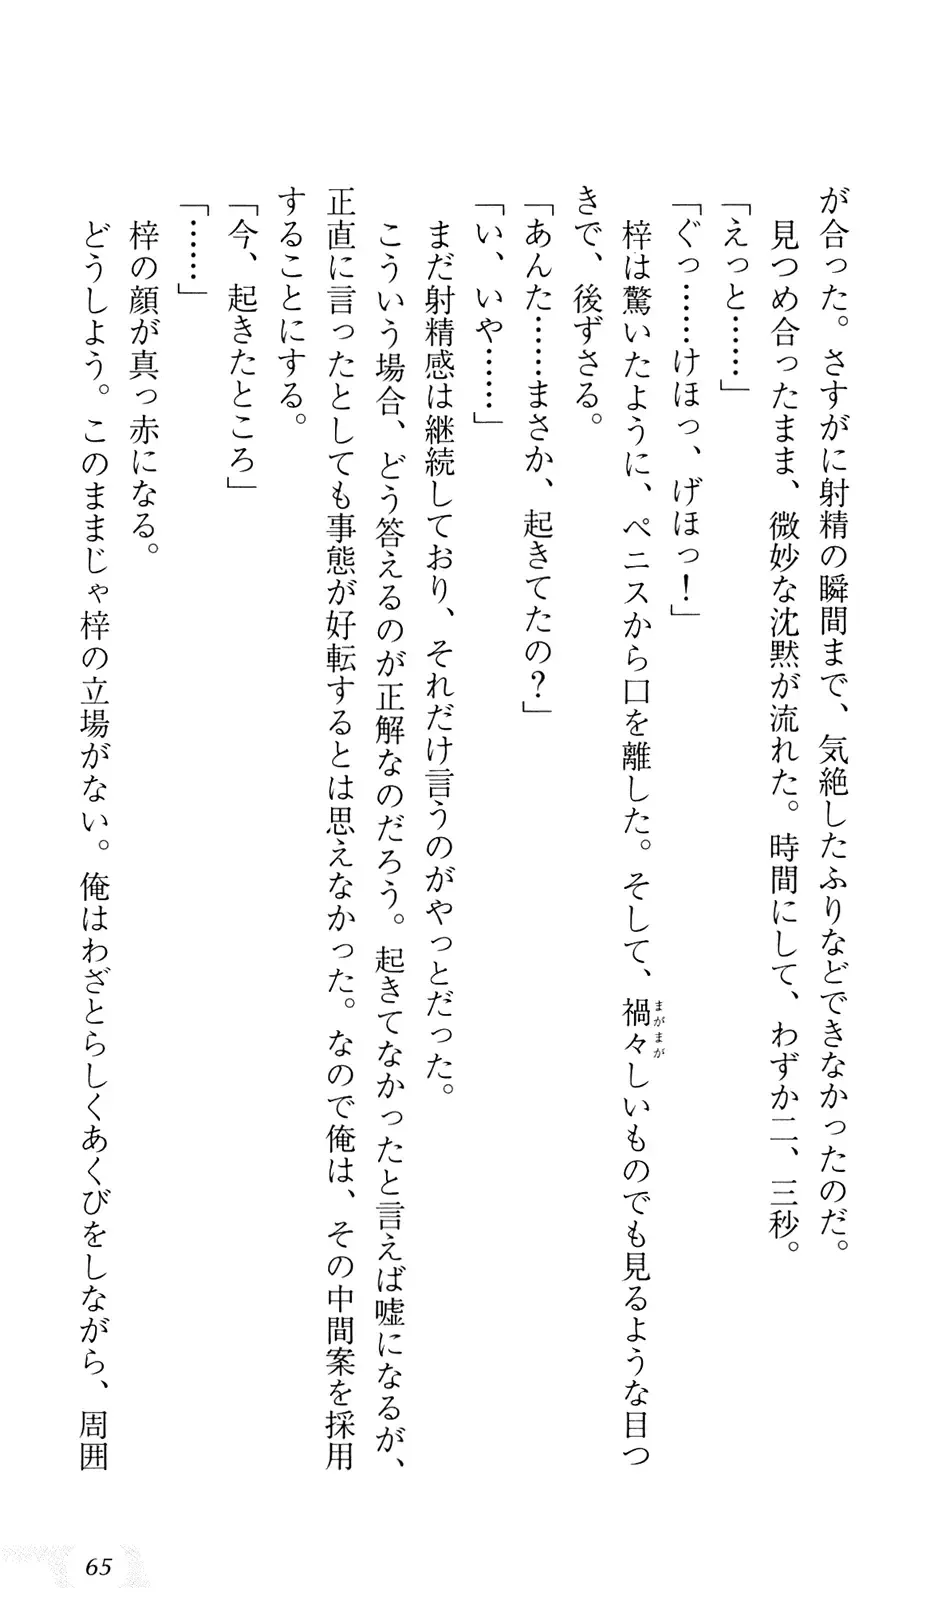 が合った。さすがに射精の瞬間まで、気絶したふりなどできなかったのだ。
見つめ合ったまま、微妙な沈黙が流れた。時間にして、わずか二、三秒。
「えっと………」
「ぐっ……けほっ、げほっ！」
梓は驚いたように、ペニスから口を離した。そして、禍々しいものでも見るような目つ
まがまが
きで、後ずさる。
「あんた……まさか、起きてたの？」
「い、いや………」
まだ射精感は継続しており、それだけ言うのがやっとだった。
こういう場合、どう答えるのが正解なのだろう。起きてなかったと言えば嘘になるが、
正直に言ったとしても事態が好転するとは思えなかった。なので俺は、その中間案を採用
することにする。
「今、起きたところ」
「……」
梓の顔が真っ赤になる。
どうしよう。このままじゃ梓の立場がない。俺はわざとらしくあくびをしながら、周囲
65